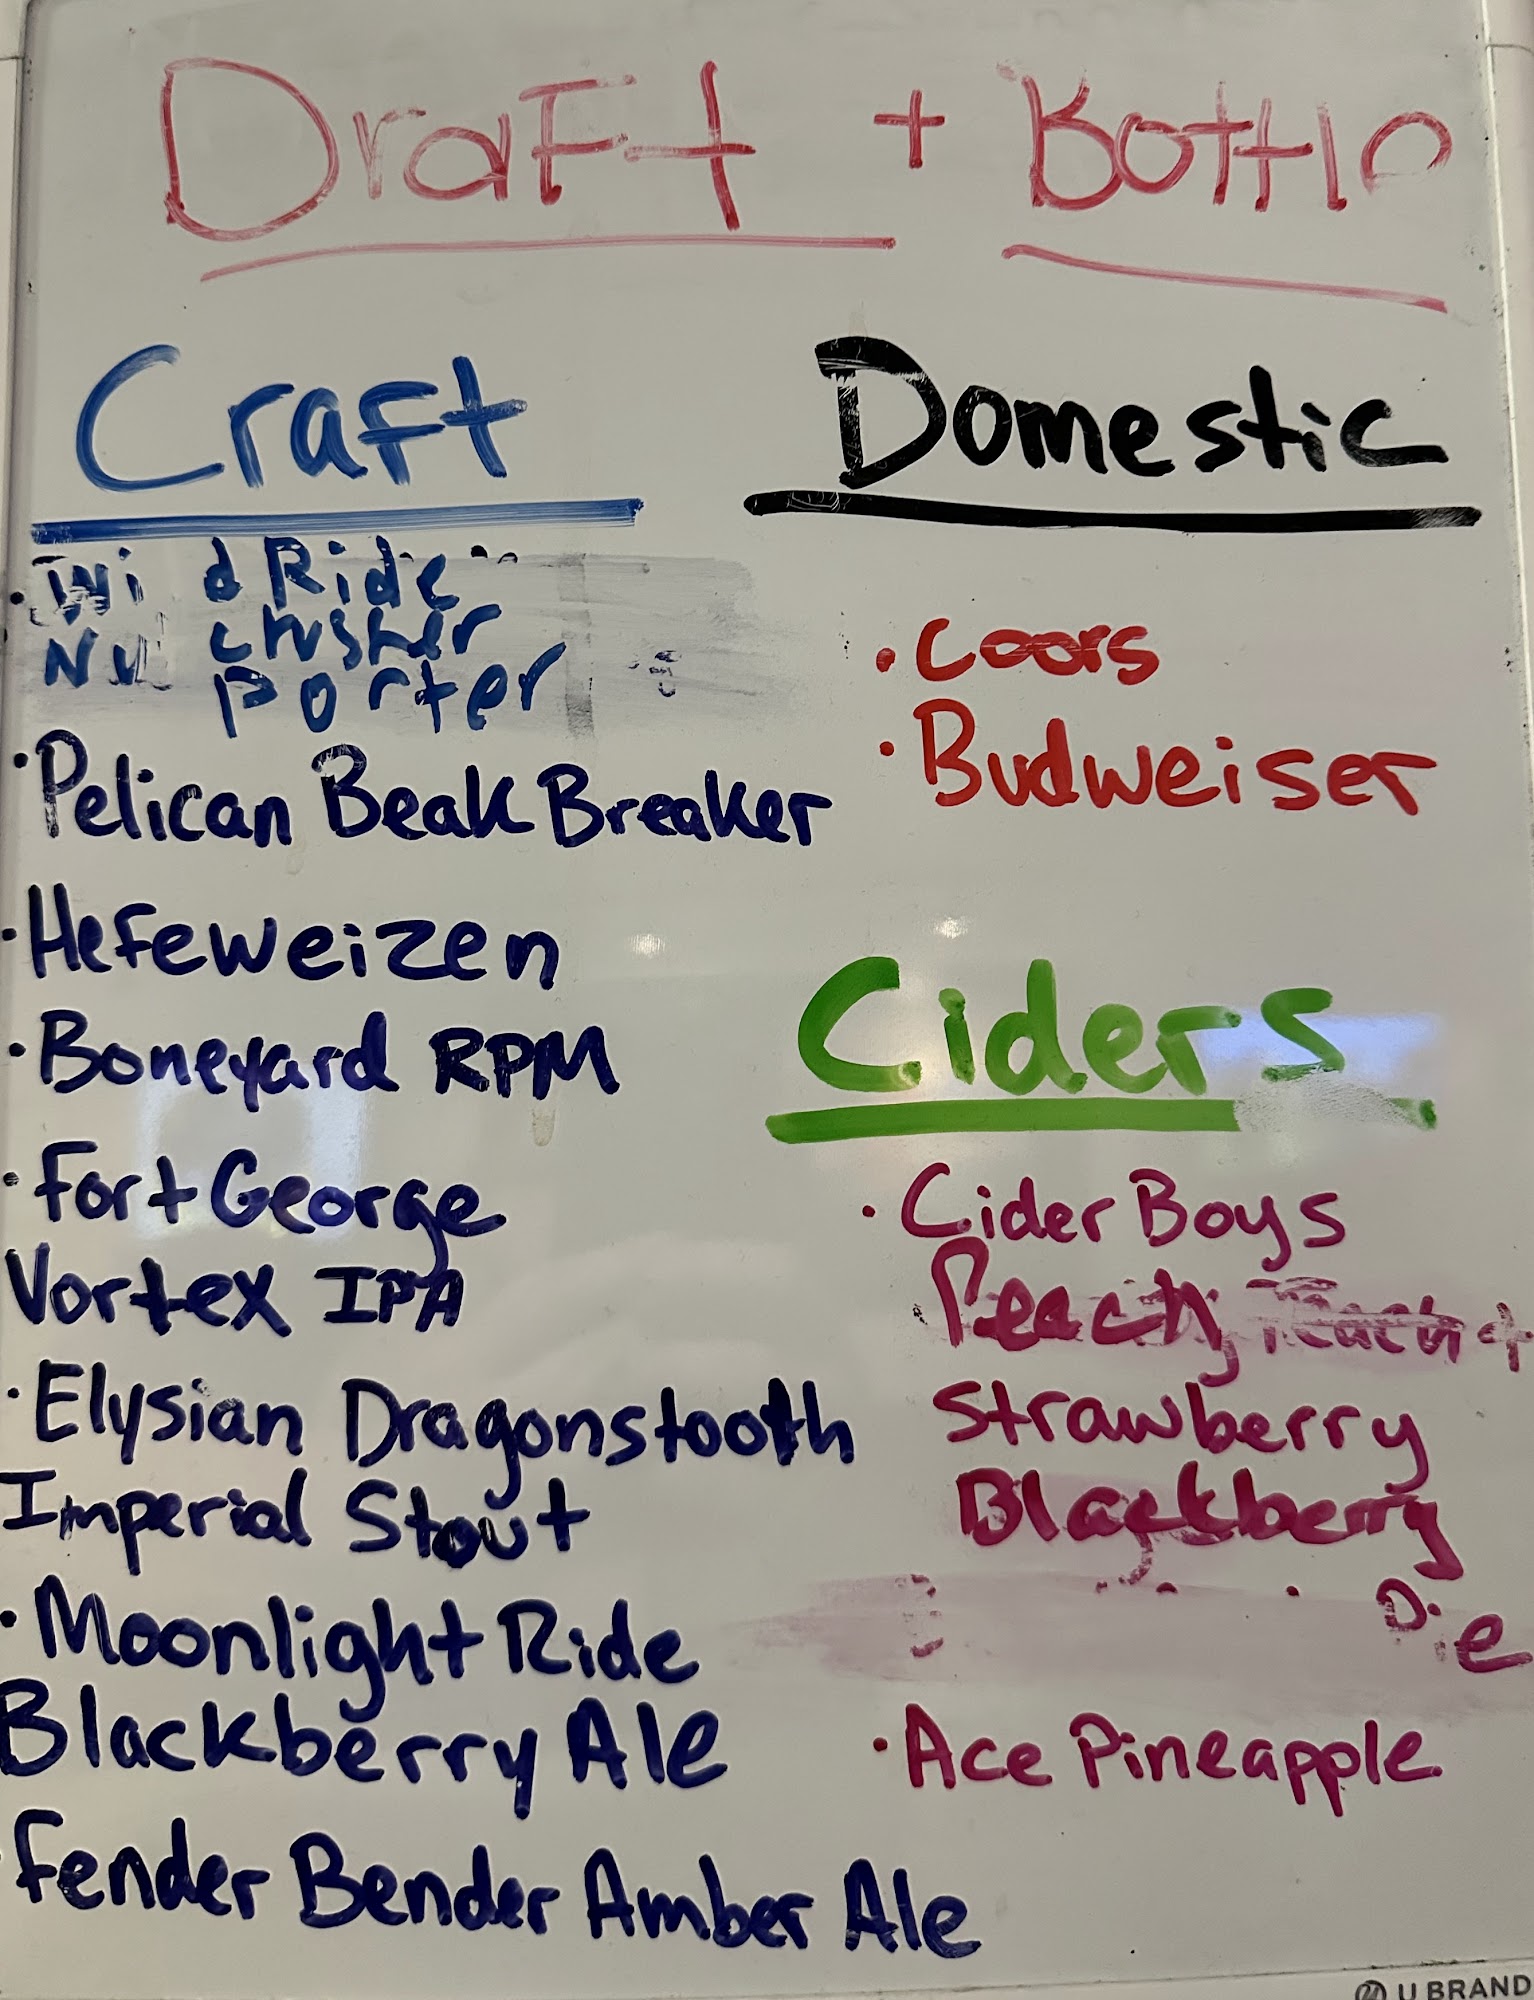 Draft + Bottle
Craft
Ride
crusher
porter
• Pelican Beak Breaker
• Hefeweizen
• Boneyard RPM
• Fort George
Vortex IPA
• Elysian Dragonstooth
Imperial Stout
• Moonlight Ride
Blackberry Ale
• Fender Bender Amber Ale
Domestic
• Coors
• Budweiser
Ciders
• Cider Boys
Peach
Strawberry
Blackberry
• Ace Pineapple
U BRAND